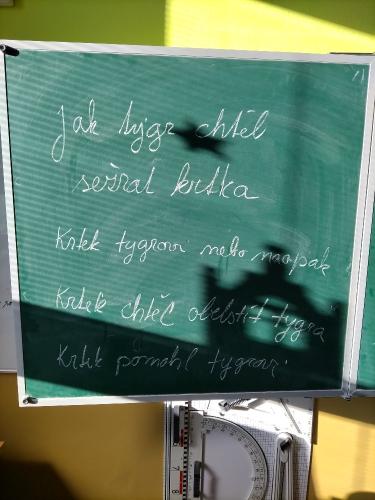 Jak tygr chtěl
sežrat krtka
Krtek tygrovi nebo naopak
Krtek chtěl obelstít tygra
Krtek pomohl tygrovi